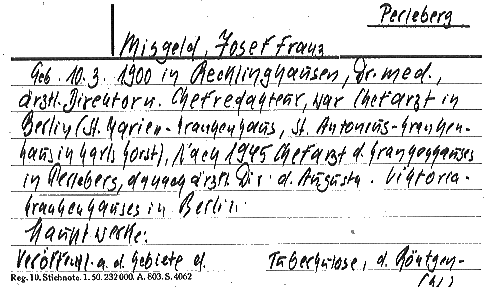 Perleberg
Misgeld, Josef Franz
Geb. 10.3.1900 in Recklinghausen, Dr. med.,
ärztl. Direktor u. Chefredakteur, war Chefarzt in
Berlin (St. Marien-Krankenhaus, St. Antonius-Kranken-
haus in Karlshorst), Nach 1945 Chefarzt d. Krankenhauses
in Perleberg, danach ärztl. Dir. d. Augusta-Viktoria-
Krankenhauses in Berlin.
Hauptwerke:
Veröffentl. a. d. Gebiete d. Tuberkulose, d. Röntgen-
Reg. 10. Stichnote. 1. 50. 232 000. A. 803. S. 4062